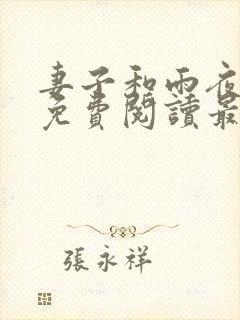 妻子和雨夜
免費閱讀最
張永祥